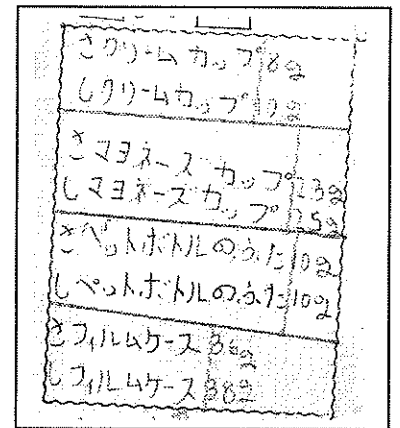 さクリームカップ8g
しクリームカップ9g
さマヨネーズカップ23g
しマヨネーズカップ25g
さペットボトルのふた10g
しペットボトルのふた10g
さフィルムケース36g
しフィルムケース38g